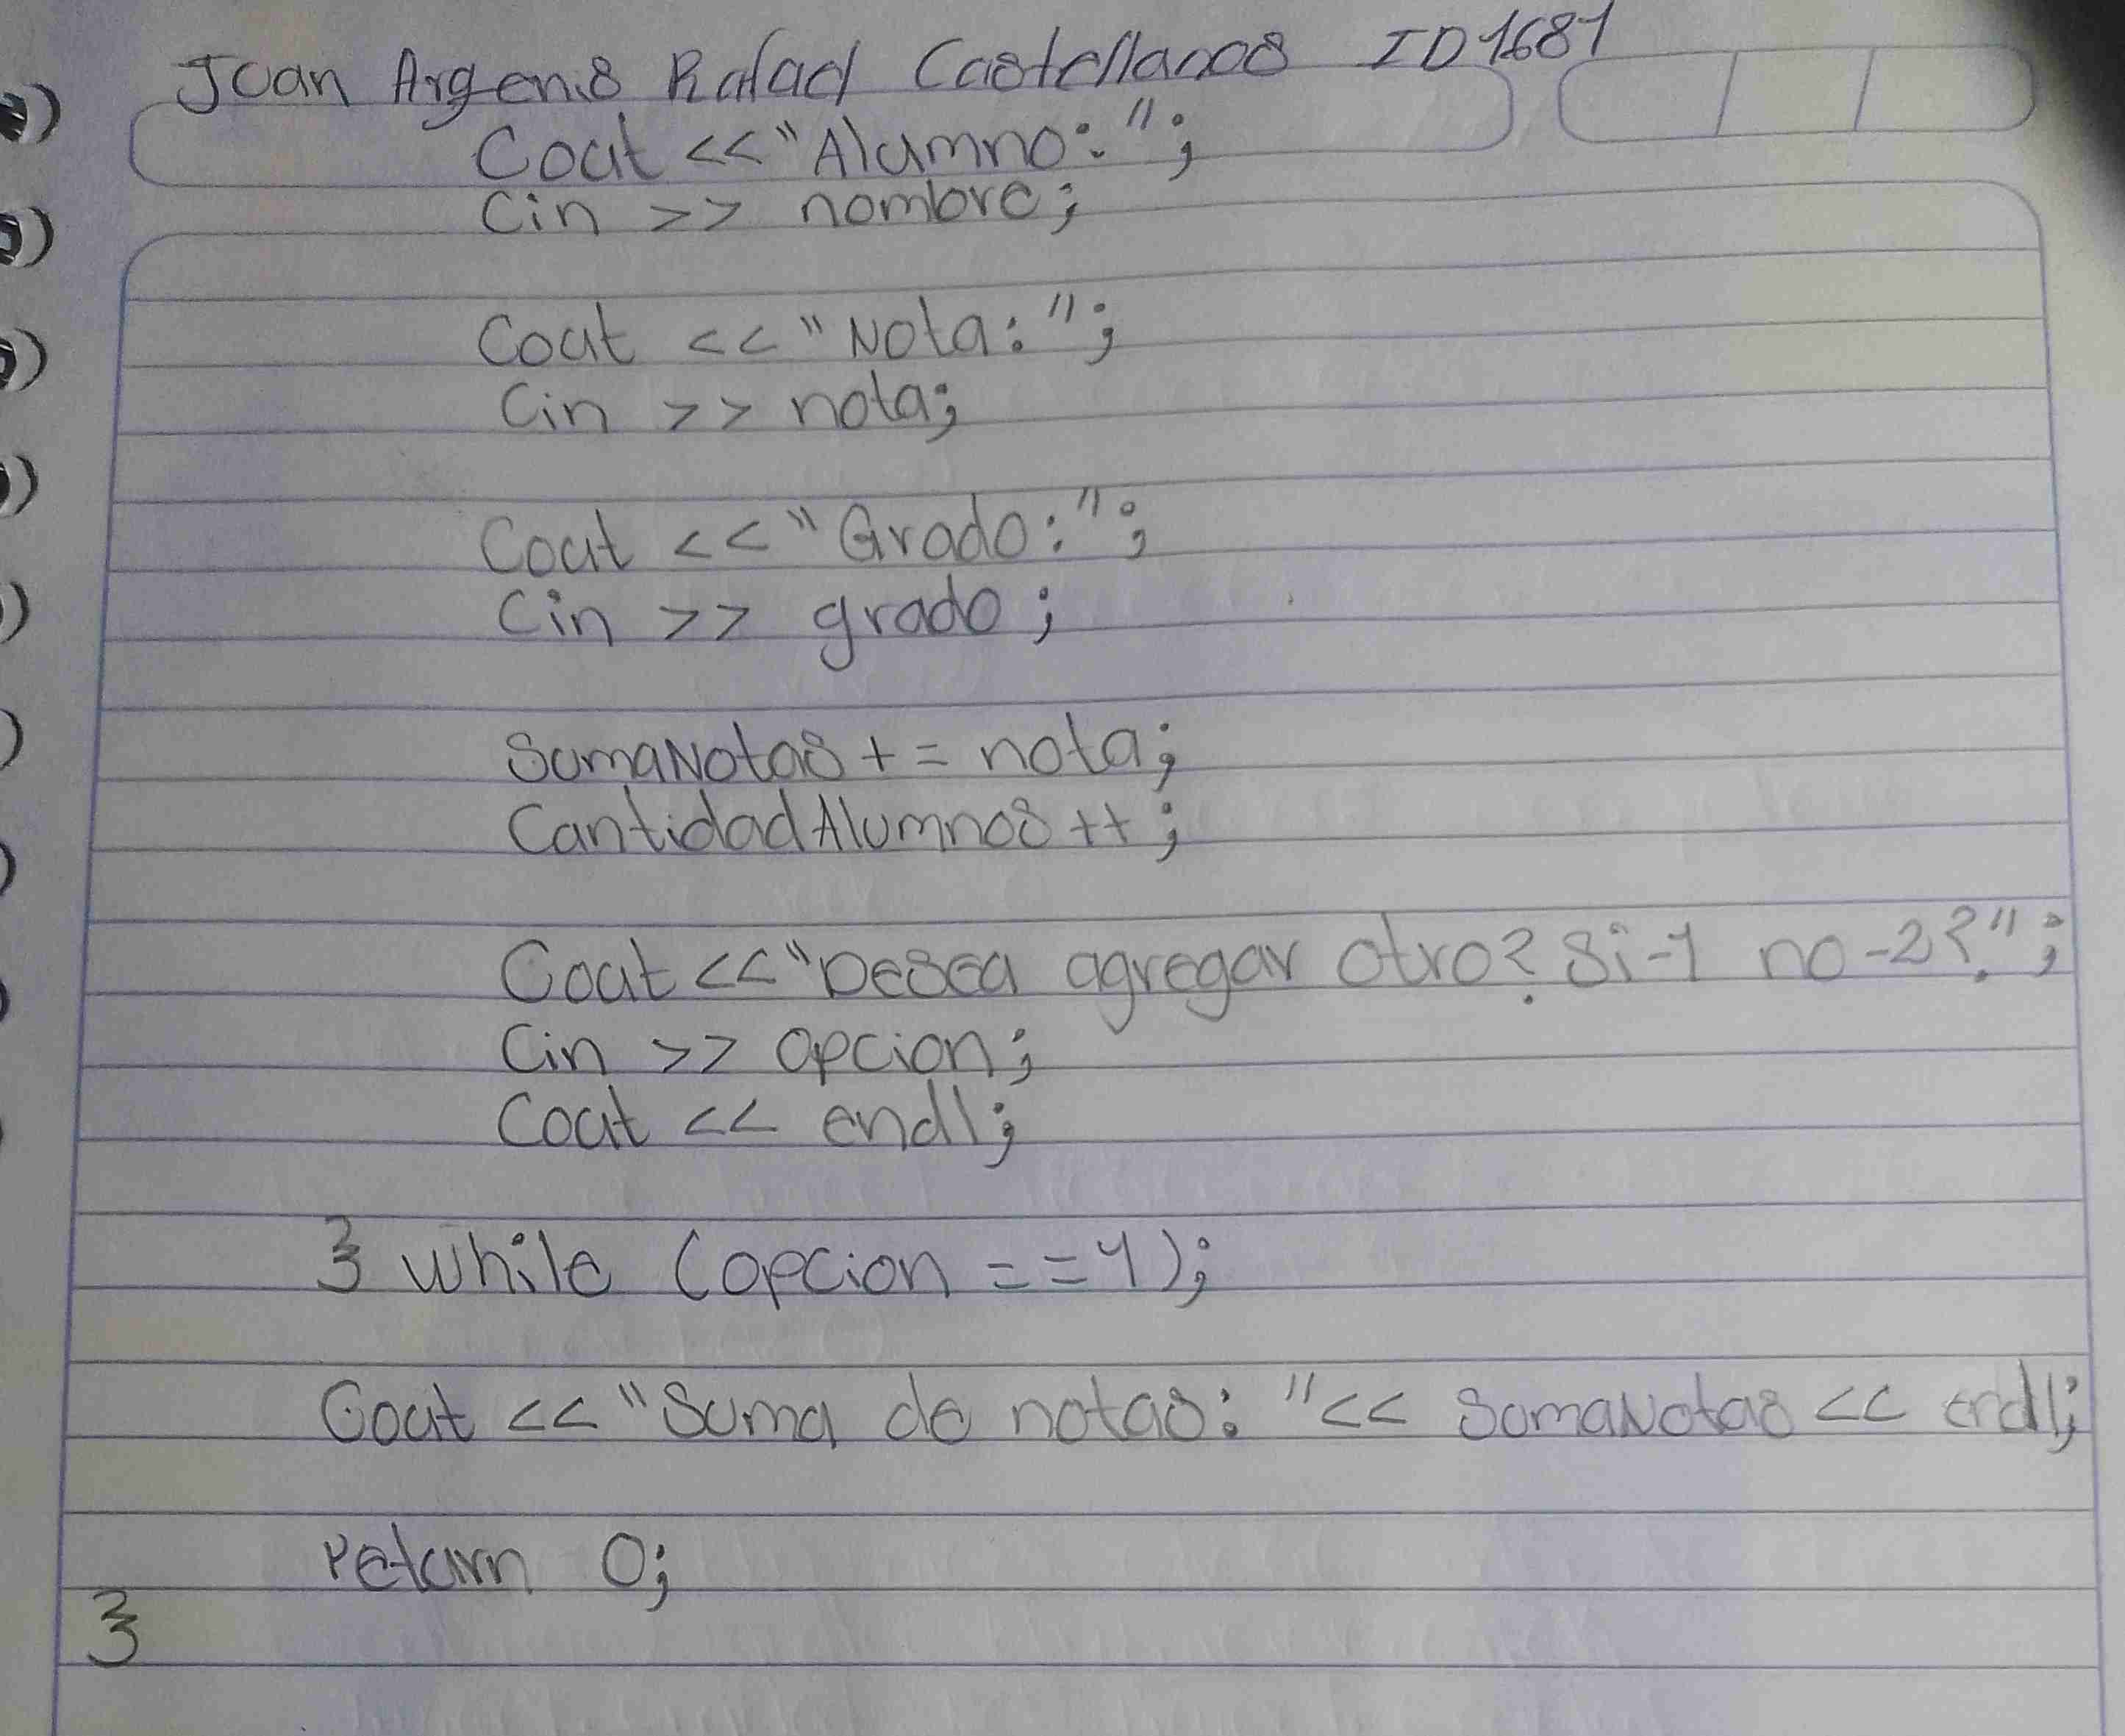 Juan Argenis Rafael Castellanos ID1681
Cout <<"Alumno:";
Cin >> nombre;
Cout <<"Nota:";
Cin >> nota;
Cout <<"Grado:";
Cin >> grado;
SumaNotas += nota;
CantidadAlumnos++;
Cout <<"Desea agregar otro? Si-1 no-2?";
Cin >> opcion;
Cout << endl;
} while (opcion ==1);
Cout <<"Suma de notas: "<< SumaNotas << endl;
return 0;
}